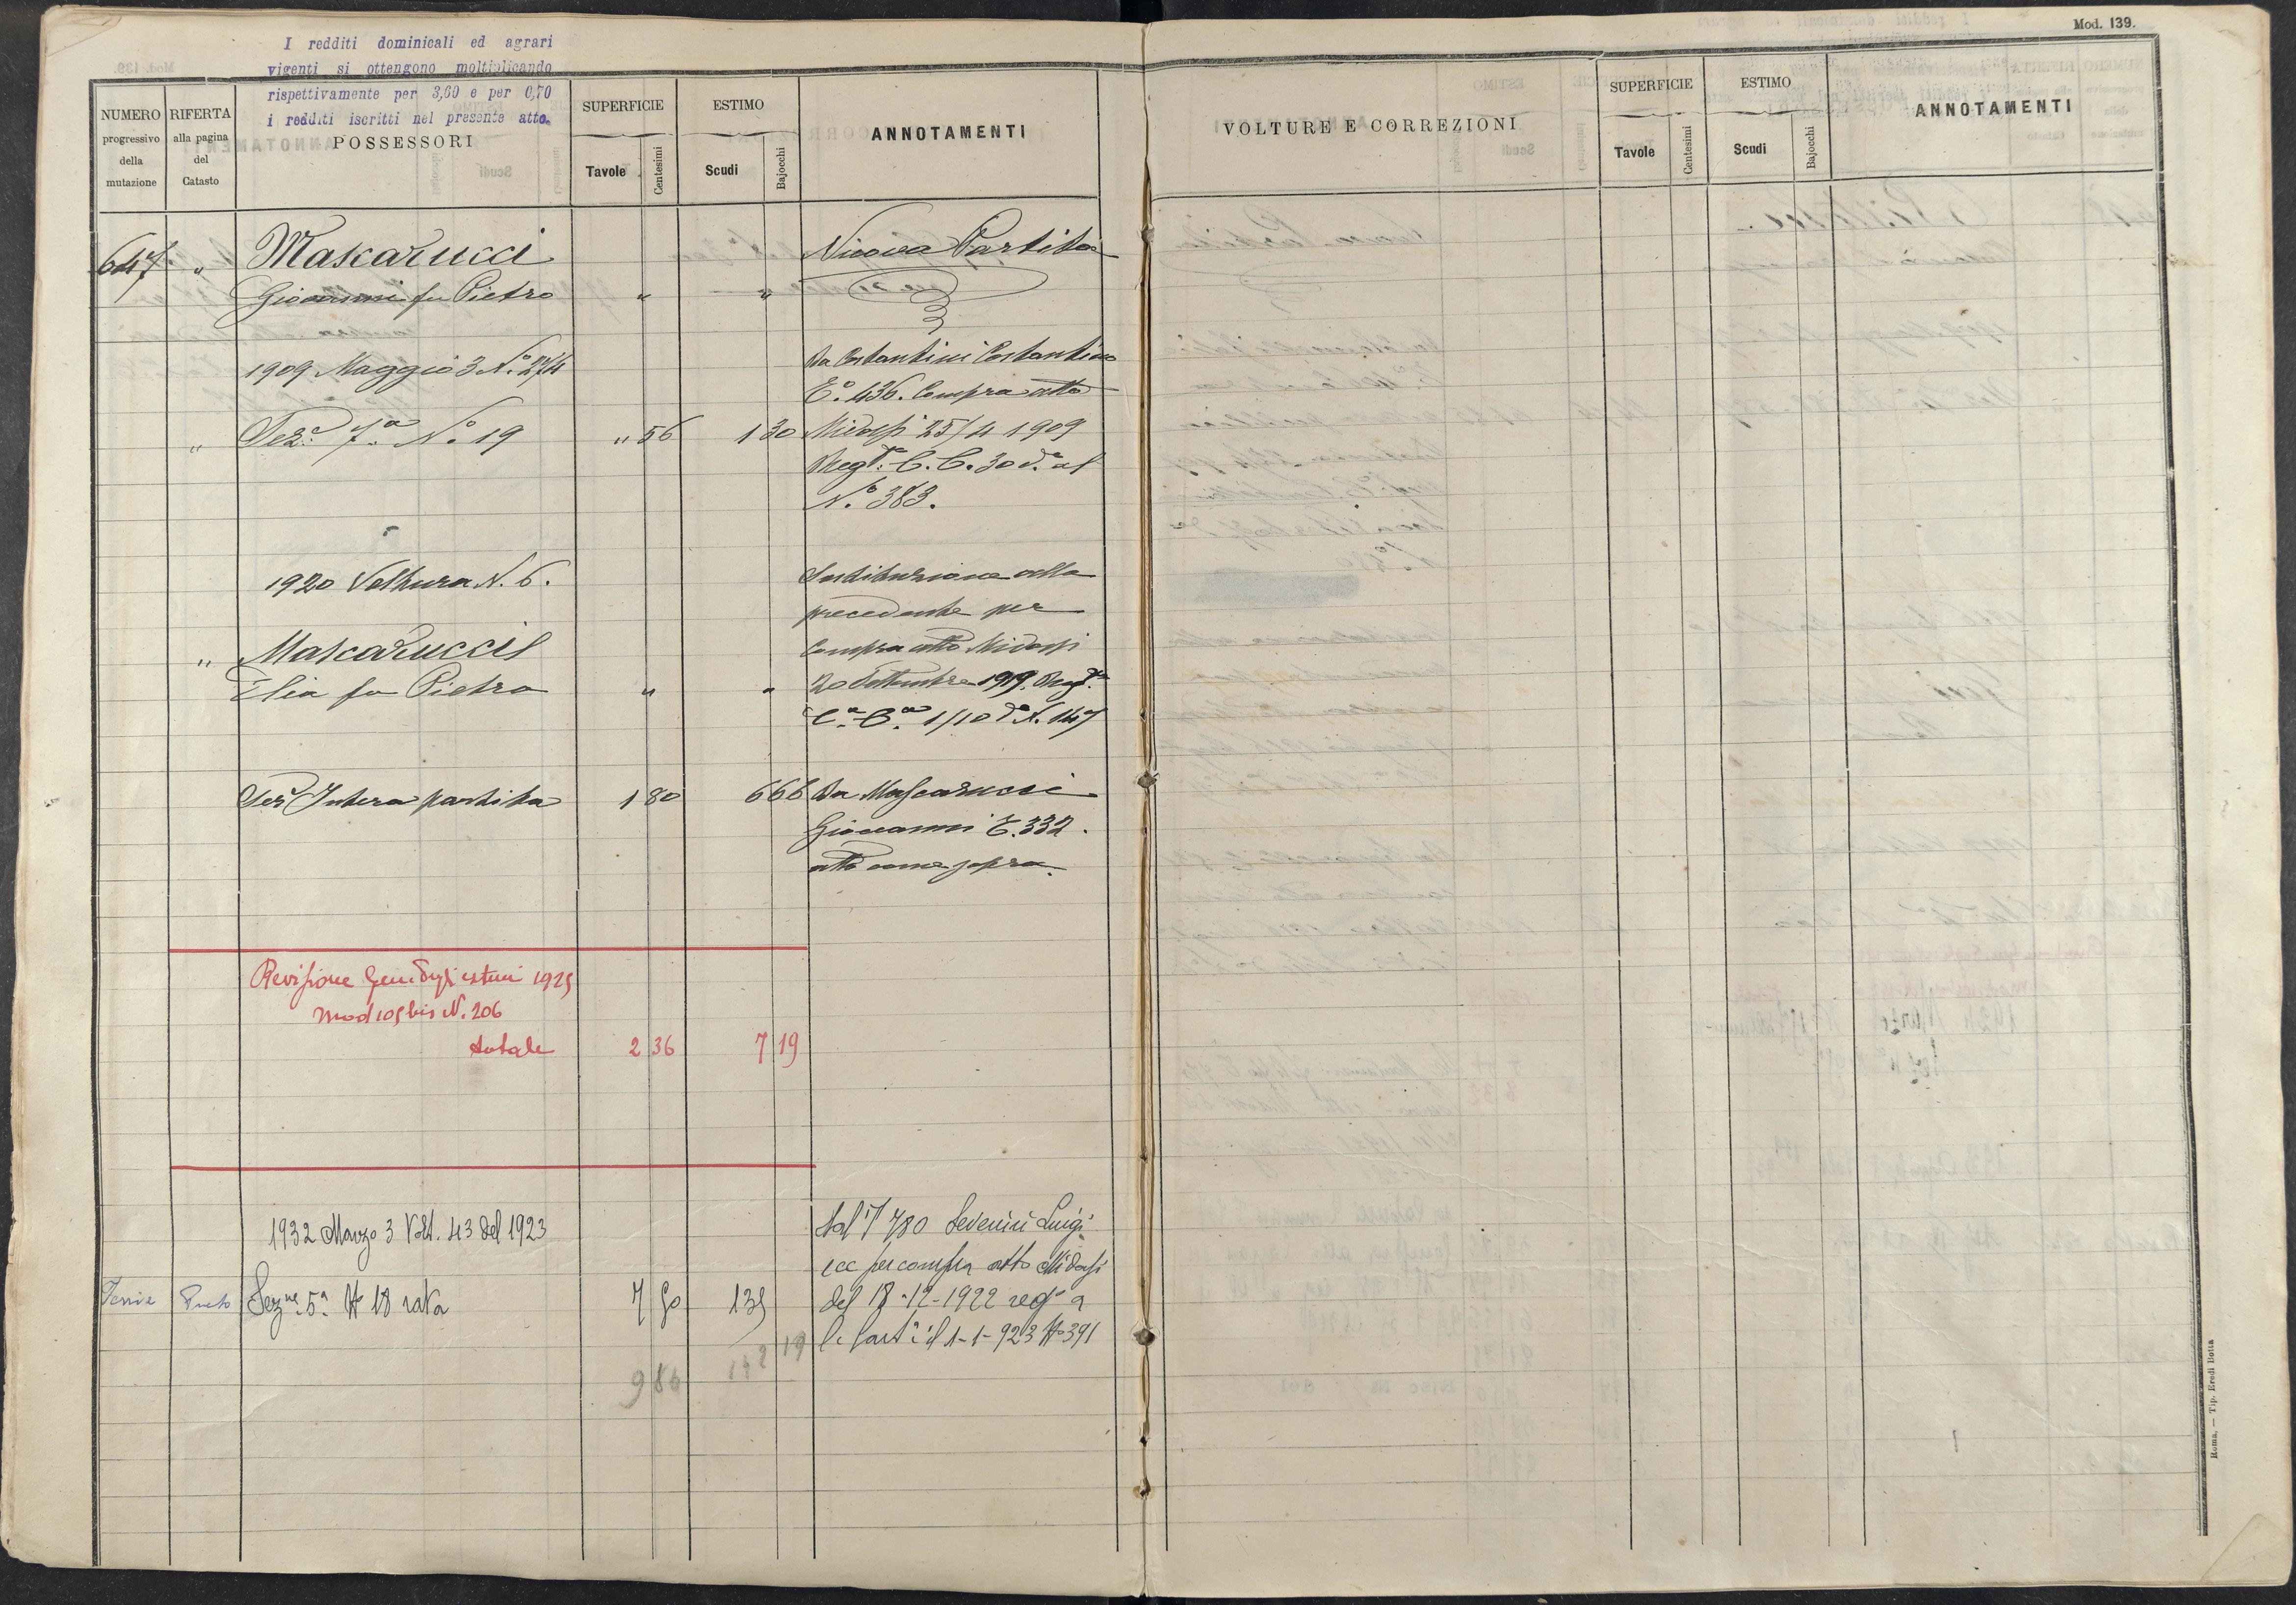 Mod. 139.
I redditi dominicali ed agrari
vigenti si ottengono moltiplicando
rispettivamente per 3,60 e per 0,70
i redditi iscritti nel presente atto.
NUMERO progressivo della mutazione
RIFERTA alla pagina del Catasto
POSSESSORI
SUPERFICIE
Tavole
Centesimi
ESTIMO
Scudi
Bajocchi
ANNOTAMENTI
VOLTURE E CORREZIONI
SUPERFICIE
Tavole
Centesimi
ESTIMO
Scudi
Bajocchi
ANNOTAMENTI
647 " Mascarucci Nuova Partita
Giovanni fu Pietro " "
1909 Maggio 3 N.º 274 Da Costantini Costantino
Tº. 436. Compra atto
" Sezº 7.ª Nº 19 " 56 1 30 Midossi 25/4 1909
Regtº. C. C. 30 dº al
Nº 383.
1920 Volthura N. 6. Sostituzione alla
precedente per
" Mascaruccil Compra atto Midossi
Elia fu Pietro " " 20 Settembre 1919. Regtº
Cª-Cª 1/10 dº N. 147
Per Intera partita 1 80 6 66 Da Mascarucci
Giovanni T. 332.
atto come sopra.
Revisione estimi 1925
Mod 105 bis N. 206
totale 2 36 7 19
1932 Marzo 3 Volt. 43 del 1923 Dal T 780 Severini Luigi
ecc per compra atto Midossi
Sezne 5ª N 18 rata 7 50 135 del 18-12-1922 regº a
il 1-1-923 N 391
9 86 142 19
Roma. — Tip. Eredi Botta